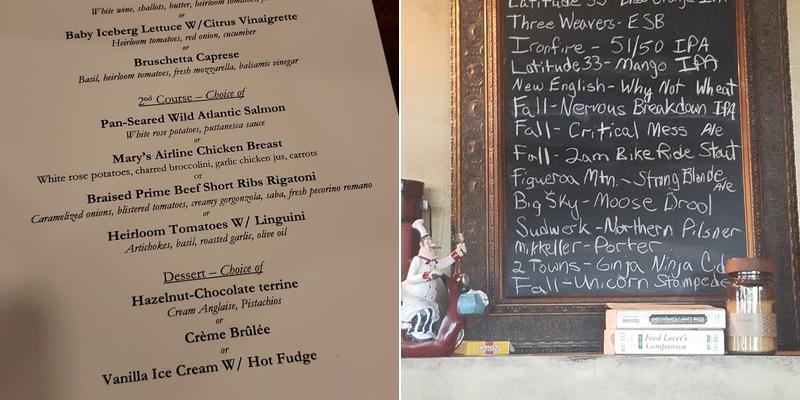 White wine, shallots, butter, heirloom tomatoes,
or
Baby Iceberg Lettuce W/Citrus Vinaigrette
Heirloom tomatoes, red onion, cucumber
or
Bruschetta Caprese
Basil, heirloom tomatoes, fresh mozzarella, balsamic vinegar
2nd Course – Choice of
Pan-Seared Wild Atlantic Salmon
White rose potatoes, puttanesca sauce
or
Mary's Airline Chicken Breast
White rose potatoes, charred broccolini, garlic chicken jus, carrots
or
Braised Prime Beef Short Ribs Rigatoni
Caramelized onions, blistered tomatoes, creamy gorgonzola, saba, fresh pecorino romano
or
Heirloom Tomatoes W/ Linguini
Artichokes, basil, roasted garlic, olive oil
Dessert – Choice of
Hazelnut-Chocolate terrine
Cream Anglaise, Pistachios
or
Crème Brûlée
or
Vanilla Ice Cream W/ Hot Fudge
Latitude 33 - Blood Orange IPA
Three Weavers - ESB
Ironfire - 51/50 IPA
Latitude 33 - Mango IPA
New English - Why Not Wheat
Fall - Nervous Breakdown IPA
Fall - Critical Mess Ale
Fall - 2am Bike Ride Stout
Figueroa Mtn. - Strong Blonde Ale
Big Sky - Moose Drool
Sudwerk - Northern Pilsner
mikkeller - Porter
2 Towns - Ginja Ninja Cid
Fall - Unicorn Stampede
Food Lover's
Companion